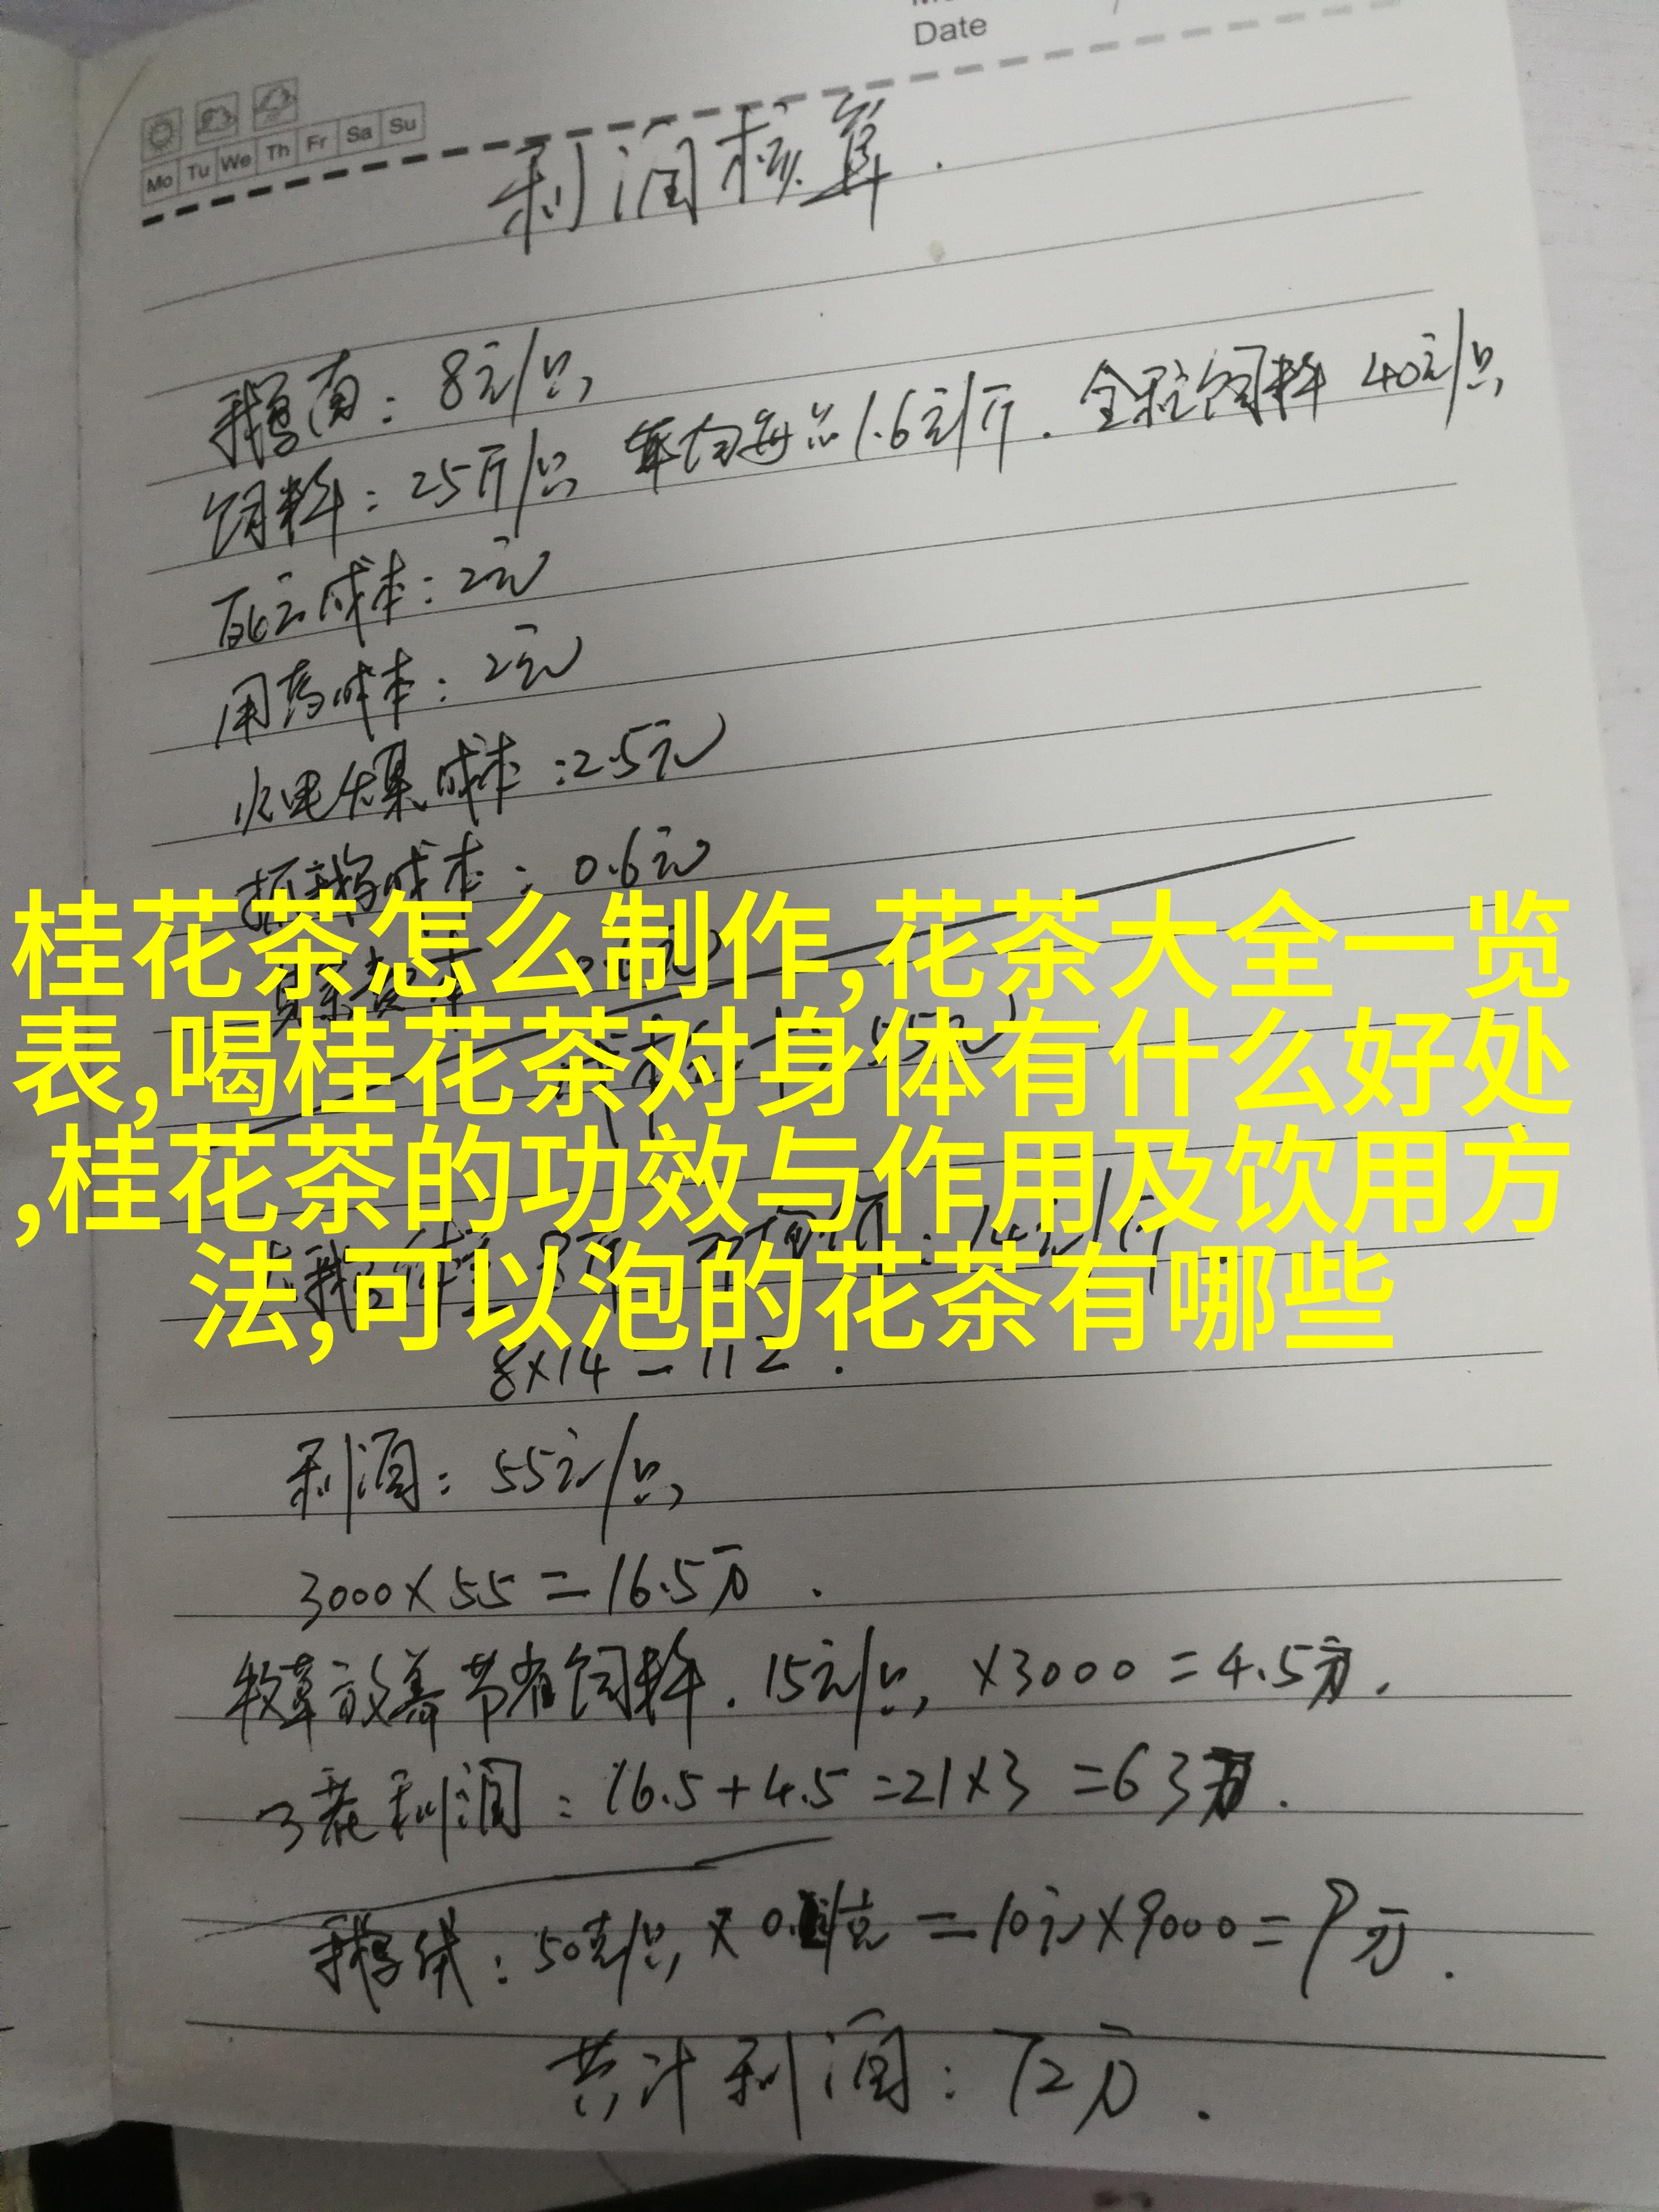 Date
Mo Tu We Th Fr Sa Su
利润核算.
鹅苗: 8元/只
饲料: 25斤/只 平均每 1.6元/斤. 全程饲料 40元/只
死亡成本: 2元
用药成本: 2元
水电煤成本: 2.5元
抓鹅成本: 0.6元
桂花茶怎么制作,花茶大全一览
表,喝桂花茶对身体有什么好处
,桂花茶的功效与作用及饮用方
法,可以泡的花茶有哪些
8×14=112.
利润: 55元/只
3000×55=16.5万.
牧草放养节省饲料. 15元/只 ×3000=4.5万.
3批利润: 16.5+4.5=21×3=63万.
鹅绒: 50克/只 × /克 =10元×9000=9万.
共计利润: 72万.